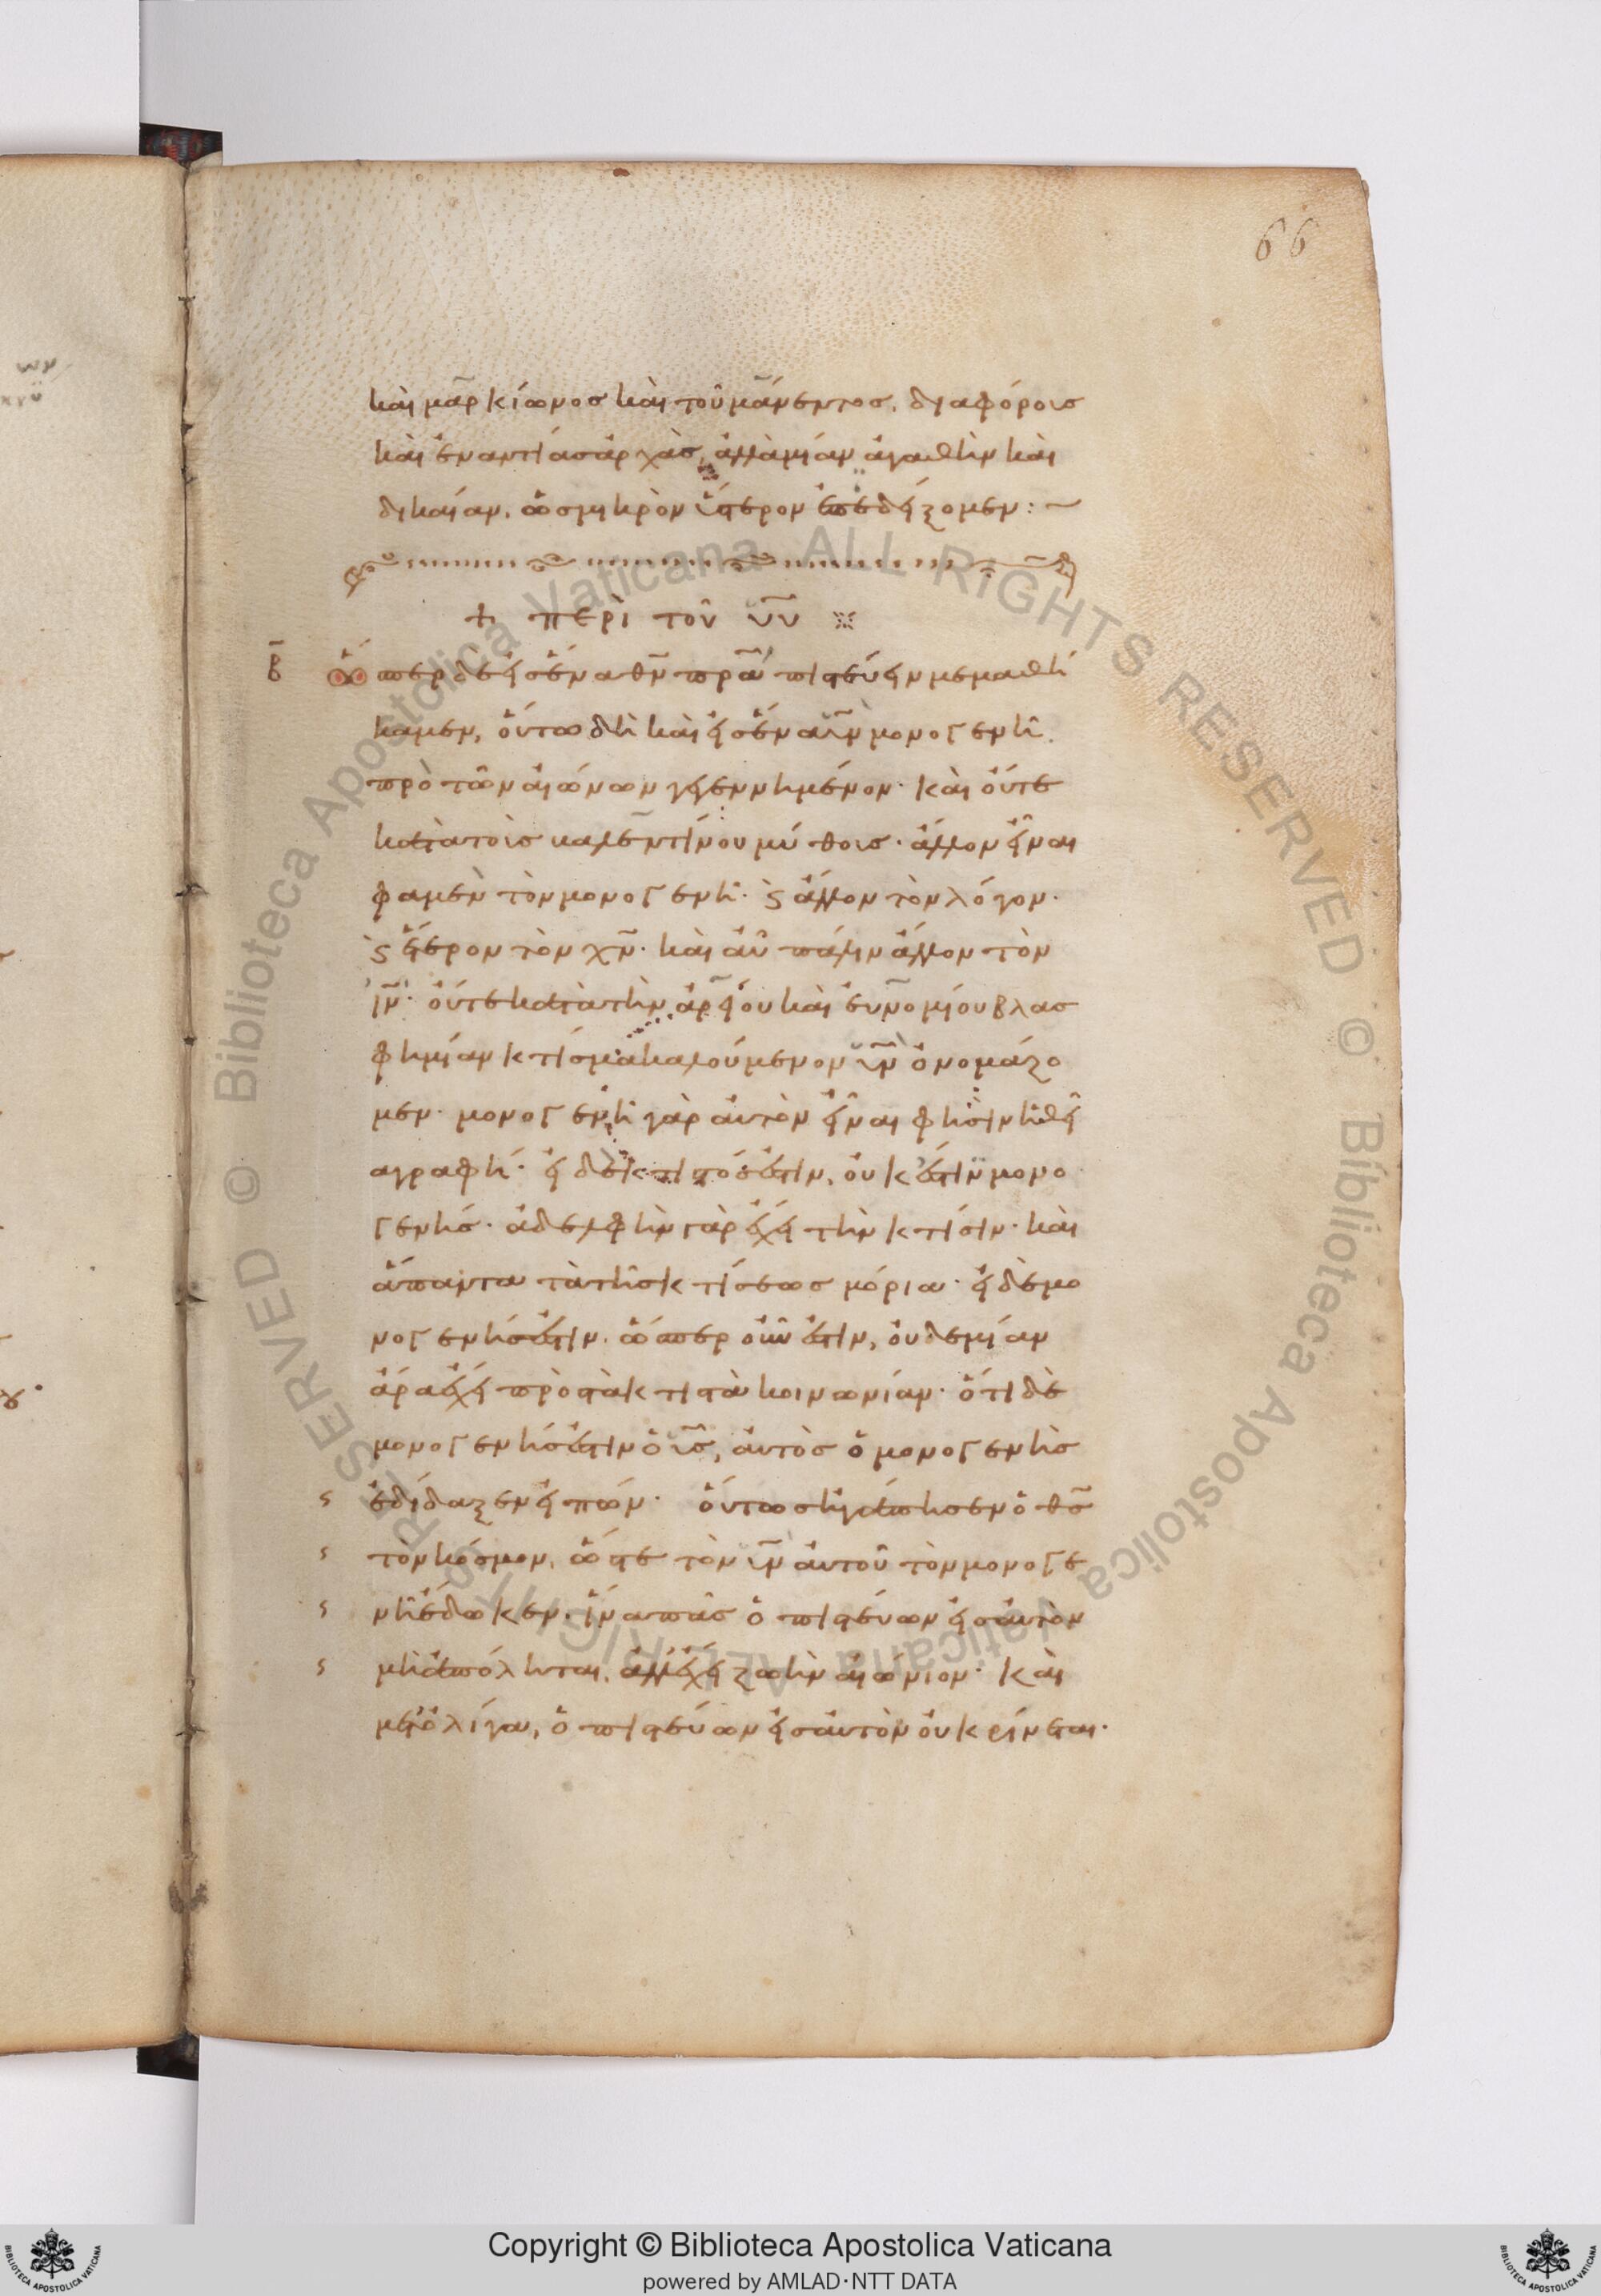 66
καὶ μαρκίωνος καὶ τοῦ μάνεντος, διαφόροις
καὶ ἐναντίας ἀρχὰς, ἀλλὰ μίαν ἀγαθὴν καὶ
δικαίαν, ὡς μικρὸν ὕστερον ἐπιδείξομεν:~
+ περὶ τοῦ υῦ
β̄ ὥσπερ δὲ εἰς ἕνα θν̄ πρ̄α πιστεύειν μεμαθή
καμεν, οὕτω δὴ καὶ εἰς ἕνα ῡν μονογενῆ
πρὸ τῶν αἰώνων γεγεννημένον· καὶ οὔτε
κατὰ τοὺς βαλεντίνου μύθους· ἄλλον εἶναι
φαμὲν τὸν μονογενῆ· ϛ ἄλλον τὸν λόγον·
ϛ ἕτερον τὸν χν̄· καὶ αὖ πάλιν ἄλλον τὸν
ῑν· οὔτε κατὰ τὴν ἀρείου καὶ εὐνομίου βλασ
φημίαν κτίσμα καλούμενον ῡν ὀνομάζο
μεν· μονογενῆ γὰρ αὐτὸν εἶναι φησὶν ἡ θεί
α γραφή· εἰ δὲ κτιστός ἐστιν, οὐκ ἔστιν μονο
γενής· ἀδελφὴν γὰρ ἔχει τὴν κτίσιν· καὶ
ἅπαντα τὰ τῆς κτίσεως μόρια· εἰ δὲ μο
νογενής ἐστιν, ὥσπερ οὖν ἔστιν, οὐδεμίαν
ἄρα ἔχει πρὸς τὰ κτιστὰ κοινωνίαν· ὅτι δὲ
μονογενής ἐστιν ὁ ῡς, αὐτὸς ὁ μονογενὴς
ἐδίδαξεν εἰπών· οὕτως ἠγάπησεν ὁ θς̄
τὸν κόσμον, ὥστε τὸν ῡν αὐτοῦ τὸν μονογε
νῆ ἔδωκεν, ἵνα πᾶς ὁ πιστεύων εἰς αὐτὸν
μὴ ἀπόληται, ἀλλ' ἔχει ζωὴν αἰώνιον· καὶ
μετ' ὀλίγα, ὁ πιστεύων εἰς αὐτὸν οὐ κρίνεται·
Copyright © Biblioteca Apostolica Vaticana
powered by AMLAD·NTT DATA